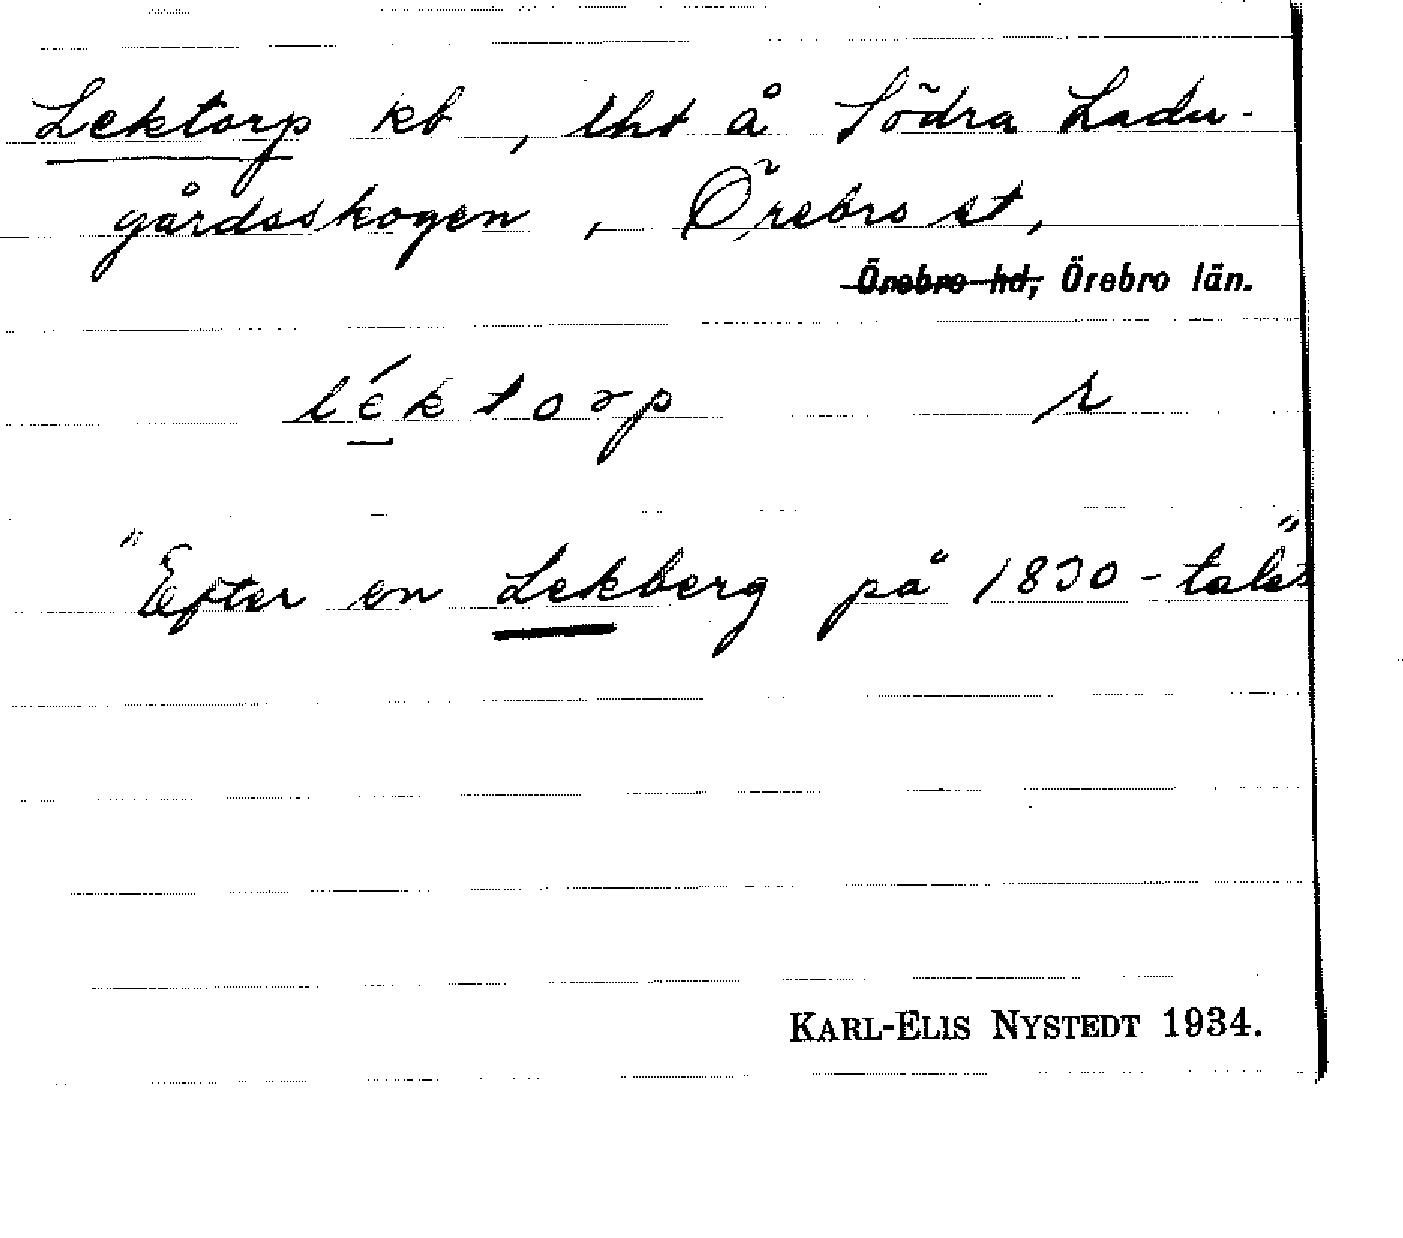 Lektorp kb, lht å Södra Ladu-
gårdsskogen, Örebro st,
Örebro hd, Örebro län.
léktorp r
"Efter en Lekberg på 1830-talet"
KARL-ELIS NYSTEDT 1934.